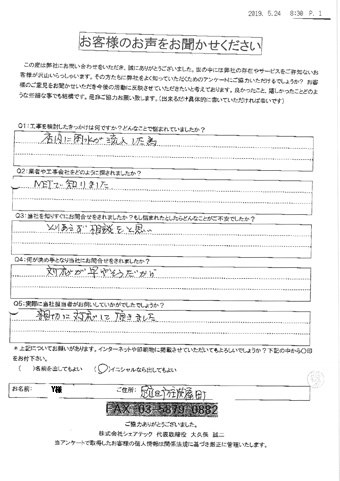 2019. 5.24 8:30 P. 1
お客様のお声をお聞かせください
この度は弊社にお問い合わせをいただき、誠にありがとうございました。世の中には弊社の存在やサービスをご存知ないお
客様が沢山いらっしゃいます。その方たちに弊社をよく知っていただくためのアンケートにご協力いただけるでしょうか? お客
様のご意見をお聞かせいただき今後の活動に反映させていただきたいと考えております。良かったこと、嬉しかったことどのよ
うな些細な事でも結構です。是非ご協力お願い致します。(出来るだけ具体的に書いていただければ幸いです)
Q1:工事を検討したきっかけは何ですか?どんなことで悩まれていましたか?
店内に雨水が流入した為
Q2:業者や工事会社をどのように探されましたか?
NETで知りました
Q3:当社を知りすぐにお問合せをされましたか?もし悩まれたとしたらどんなことがご不安でしたか?
とりあえず相談をと思い
Q4:何が決め手となり当社にお問合せをされましたか?
対応が早そうだから
Q5:実際に当社担当者がお伺いしていかがでしたでしょうか?
親切に対応して頂きました
※上記についてお願いがあります。インターネットや印刷物に掲載させていただいてもよろしいでしょうか?下記の中から〇印
をお付下さい。
( )名前を出してもよい (〇)イニシャルなら出してもよい
お名前: Y様 ご住所:
FAX 03-5879-0882
ご協力ありがとうございました。
株式会社シェアテック 代表取締役 大久保 誠二
当アンケートで取得したお客様の個人情報は関係法規に基づき厳正に管理いたします。